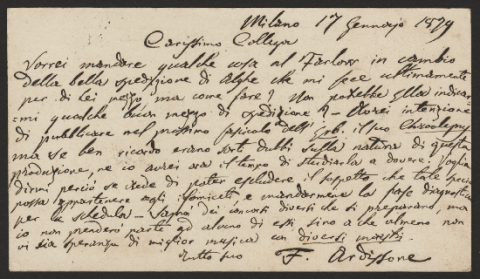 Milano 17 Gennajo 1879
Carissimo Collega
Vorrei mandare qualche cosa al Farlow in cambio
della bella spedizione di alghe che mi fece ultimamente
per di lei mezzo, ma come fare? Non potrebbe Ella indicar
=mi qualche buon mezzo di spedizione? - Avrei intenzione
di pubblicare nel prossimo fascicolo dell' Erb. il suo
ma se ben ricordo erano sorti dubbi sulla natura di questa
produzione, ne io avrei ora il tempo di studiarla a dovere. Voglia
dirmi perciò se crede di poter escludere il sospetto che tale specie
possa appartenere agli Fomiceti e mandarmene la frase diagnostica
per la schedula - Sagno dei concerti diversi che si preparano, ma
io non prenderò parte ad alcuno di essi fino a che almeno non
vi sia speranza di miglior musica con diversi maestri.
Tutto suo
F. Ardissone